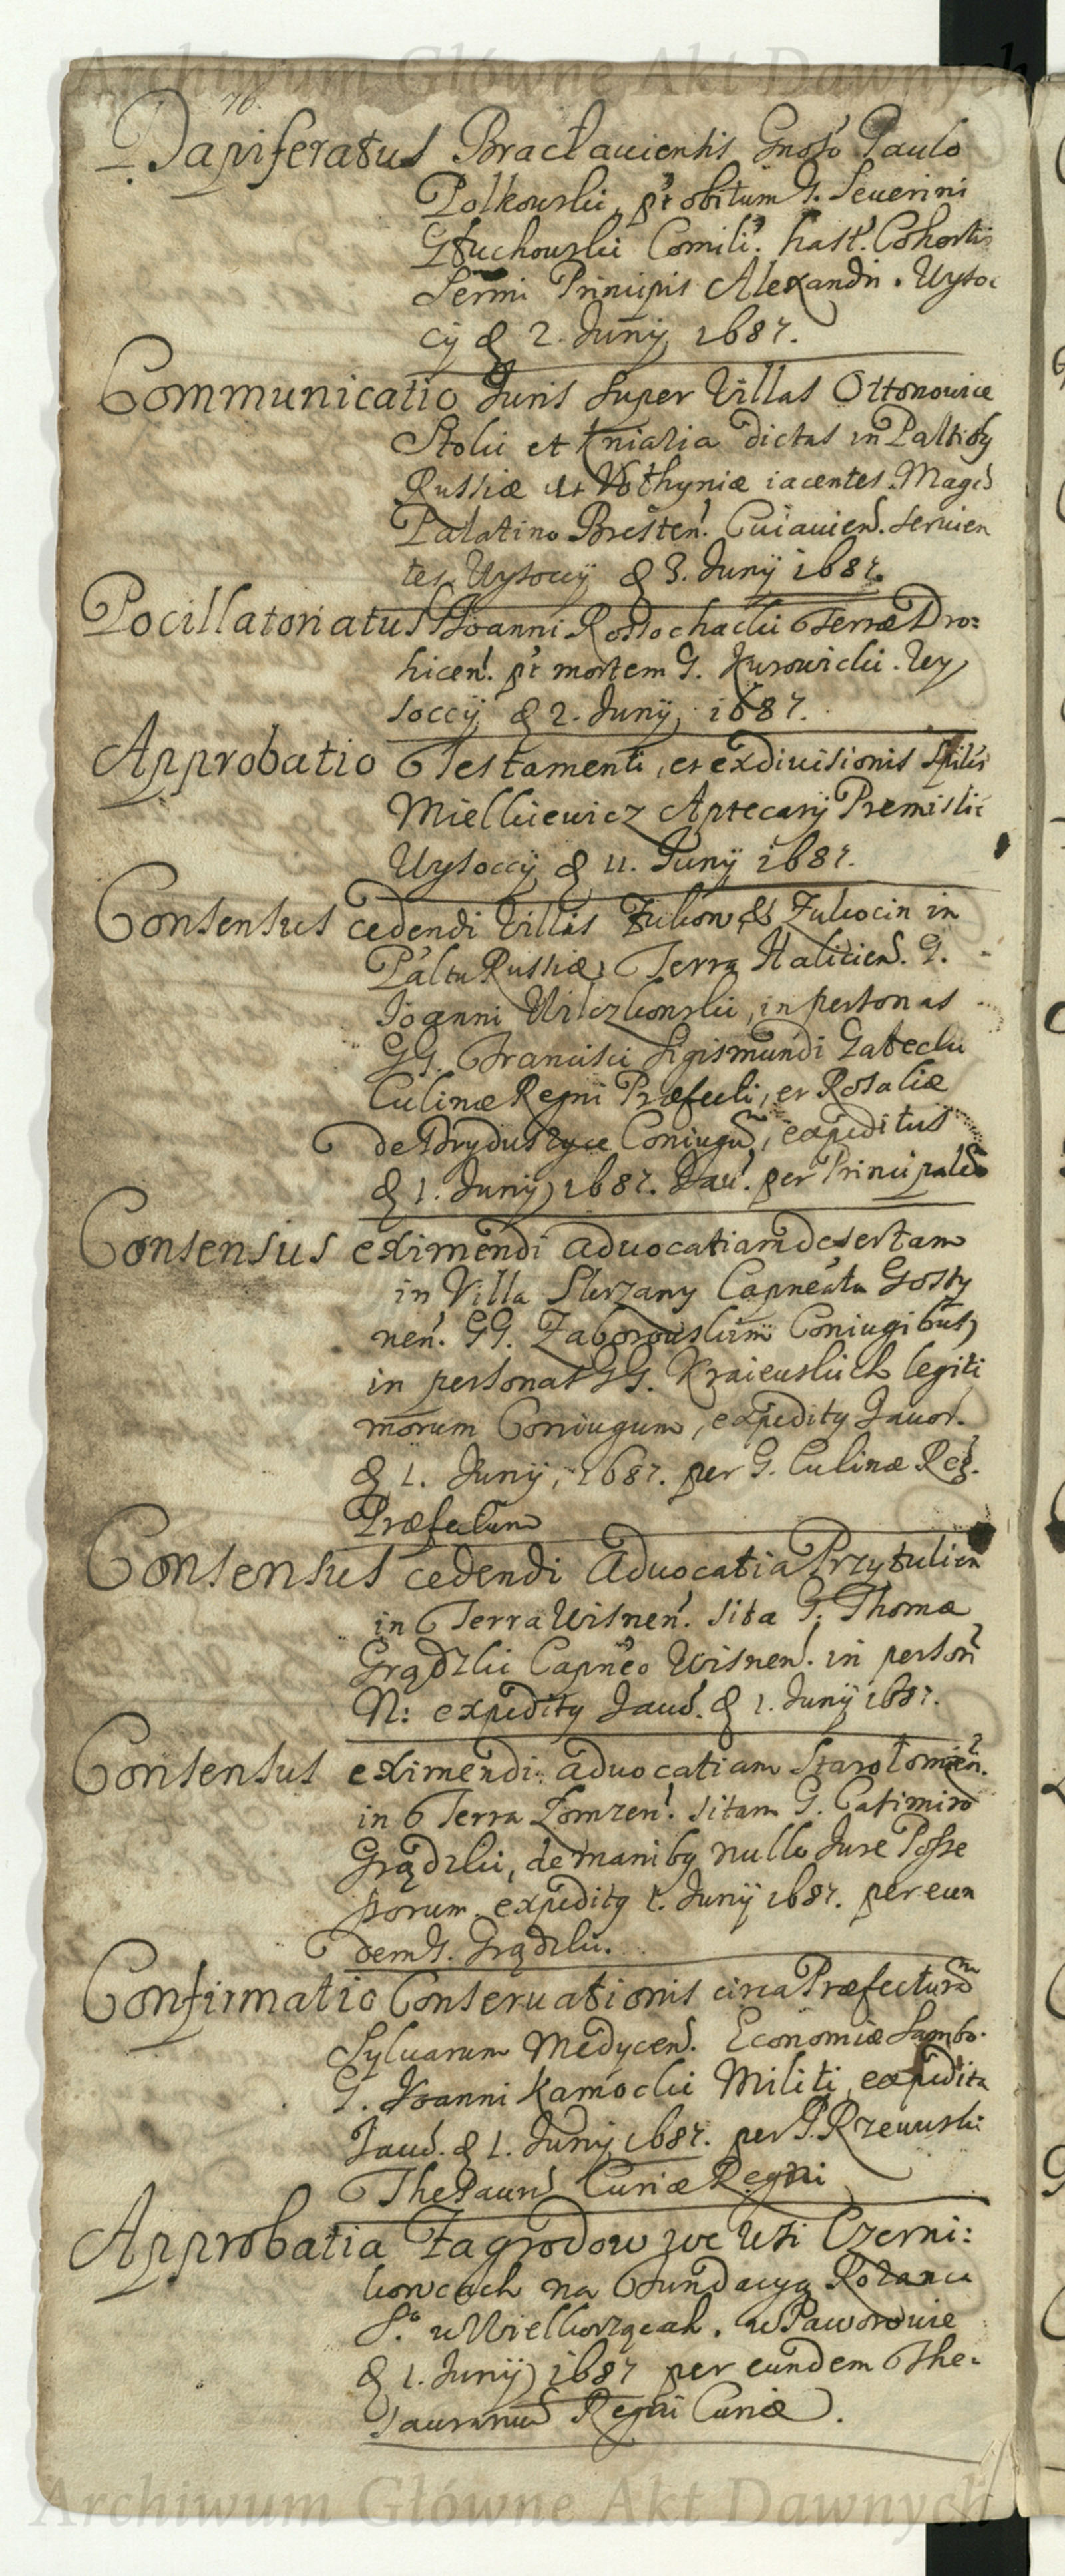 Archiwum Główne Akt Dawnych
76.
Dapiferatus Bracłauiensis Gnoso Paulo
Polkowski, pt obitum G. Seuerini
Głuchowski Comili. hast. Cohortis
Sermi Principis Alexandri. Wyso
cÿ d 2. Junÿ 1687.
Communicatio Juris super Villas Ottonowice
Stolii et Kniazia dictas in Paltiby
Russiæ et Wołhyniæ iacentes. Magco
Palatino Bresten. Cuiauien. seruien
tes. Wysoccÿ d 3. Junÿ 1687.
Pocillatoriatus Joanni Rossochacki Terræ Dro:
hicen. pt mortem G. Kurowicki. Wy
soccÿ d 2. Junÿ, 1687.
Approbatio Testamenti, et exdiuisionis
Mielkiewicz Aptecarÿ Premisli
Wysoccÿ d 11. Junÿ 1687.
Consensus cedendi Villis Zukow & Zukocin in
Paltu Russiæ, Terra Halicien. G.
Joanni Wilczkowski, in personas
GG. Francisci Sigismundi Gałecki
Culinæ Regni Præfecti, et Rosaliæ
de Dryduszyce Coniugum, expeditus
d 1. Junÿ 1687. Jau. per Principales
Consensus eximendi aduocatiam desertam
in Villa Skrzany Capneatu Gosty
nen. GG. Zaborowskim Coniugibus,
in personas GG. Kraiewskich legiti
morum Coniugum, expedity Jauor.
d 1. Junÿ, 1687. per G. Culinæ Reg.
Præfectum
Consensus cedendi Aduocatia Przytulien
in Terra Wisnen. sita G. Thomæ
Grądzki Capneo Wisnen. in person
N: expedity Jauo. d 1. Junÿ 1687.
Consensus eximendi aduocatiam Starołomien.
in Terra Łomzen. sitam G. Casimiro
Grądzki, de manibq nullo Jure Posse
ssorum. expeditq 1. Junÿ 1687. per eun
dem G. Grądzki.
Confirmatio Conseruationis circa Præfecturam
Syluarum Medycen. Economiæ Sambo.
G. Joanni Kamocki Militi, expedita
Jauo. d 1. Junÿ 1687. per G. Rzewuski
Thesaur. Curiæ Regni
Approbatia Zagrodow we Wsi Czerni:
kowcach na Fundacyą Rożanca
S. w Wielkorząeah. w Paworowie
d 1. Junÿ 1687 per eundem The-
saurarium Regni Curiæ.
Archiwum Główne Akt Dawnych